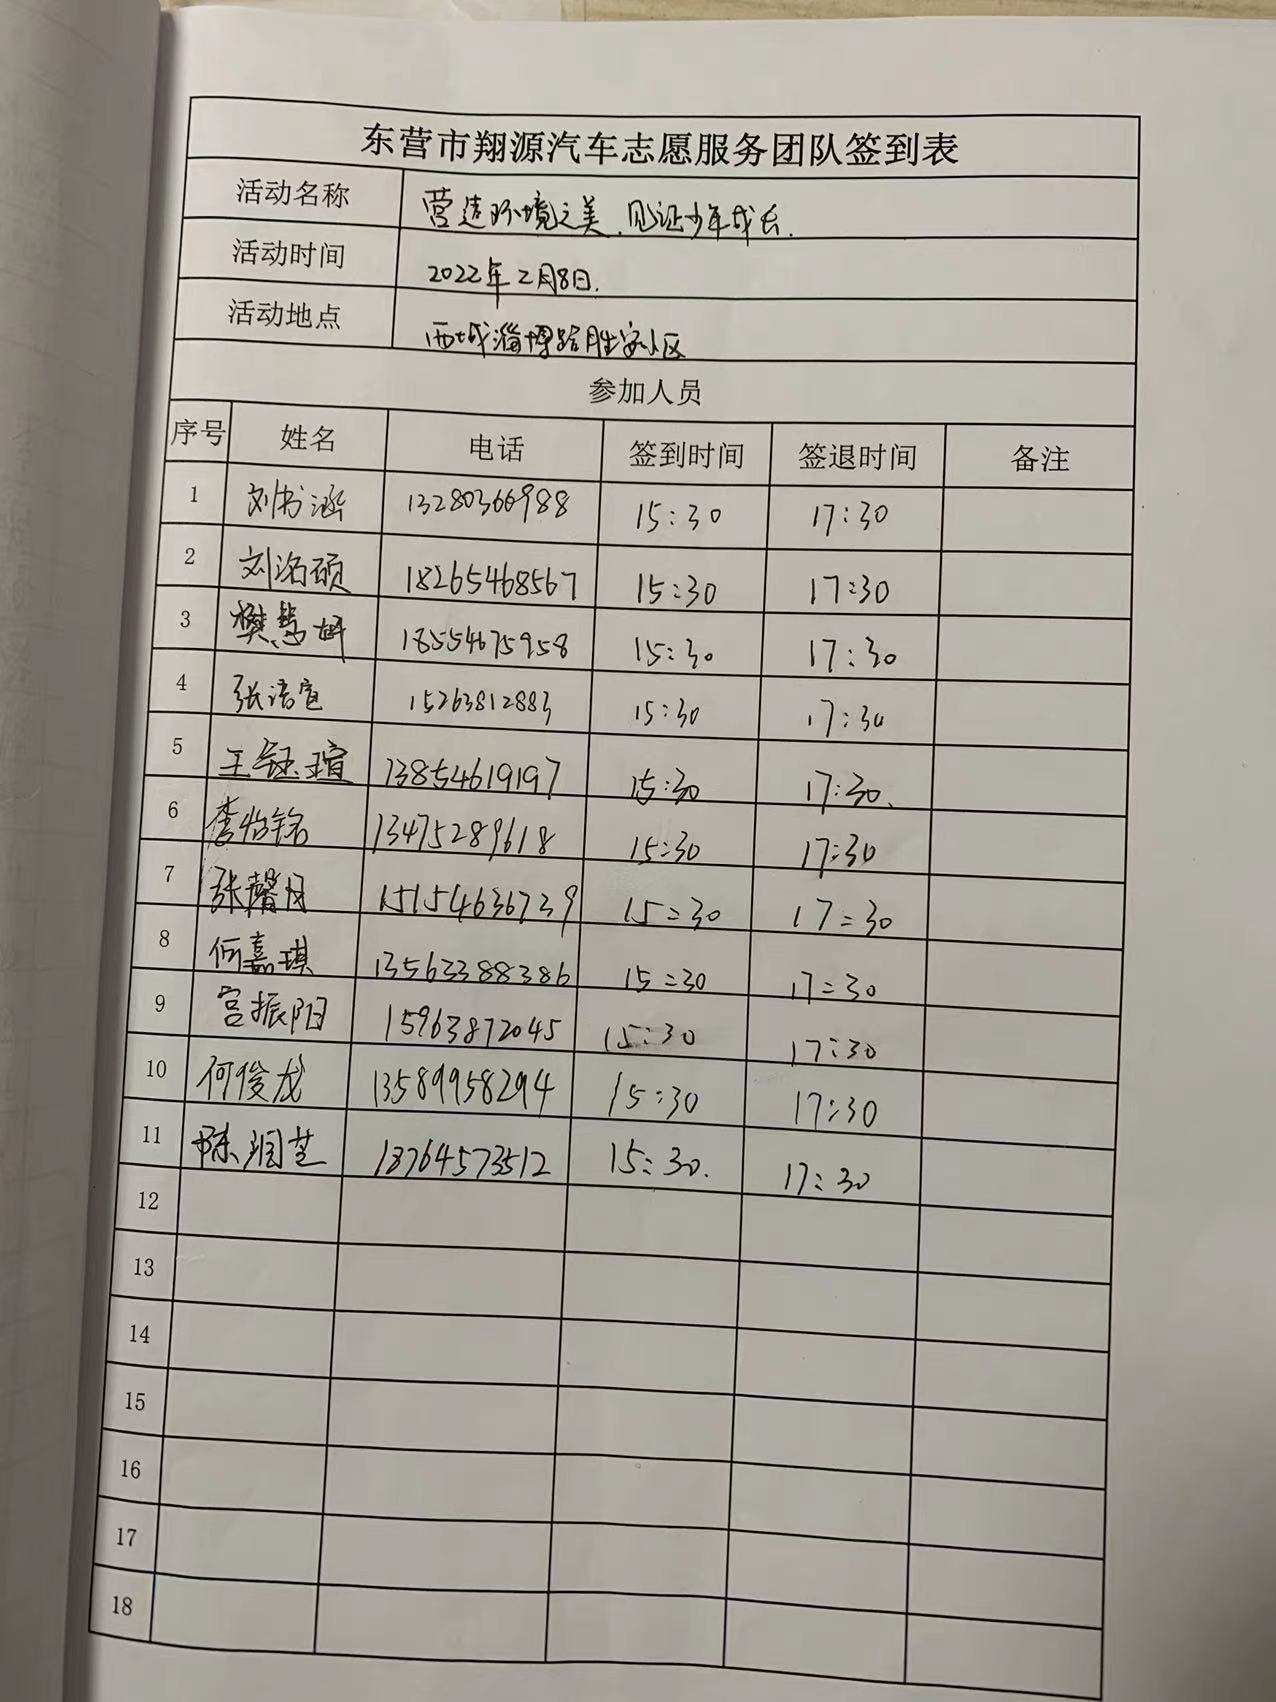 东营市翔源汽车志愿服务团队签到表
活动名称 营造环境之美、见证少年成长.
活动时间 2022年2月8日.
活动地点 西城淄博路胜安小区
参加人员
序号 姓名 电话 签到时间 签退时间 备注
1 刘书涵 13280366988 15:30 17:30
2 刘洺硕 18265468567 15:30 17:30
3 樊慧妍 18554675958 15:30 17:30
4 张洁宣 15263812883 15:30 17:30
5 王钰瑄 13854619197 15:30 17:30.
6 李怡铭 13475289618 15:30 17:30
7 张馨月 15154636739 15:30 17:30
8 何嘉琪 13563388386 15:30 17:30
9 宫振阳 15963872045 15:30 17:30
10 何俊龙 13589958294 15:30 17:30
11 陈润芝 18764573512 15:30. 17:30
12
13
14
15
16
17
18